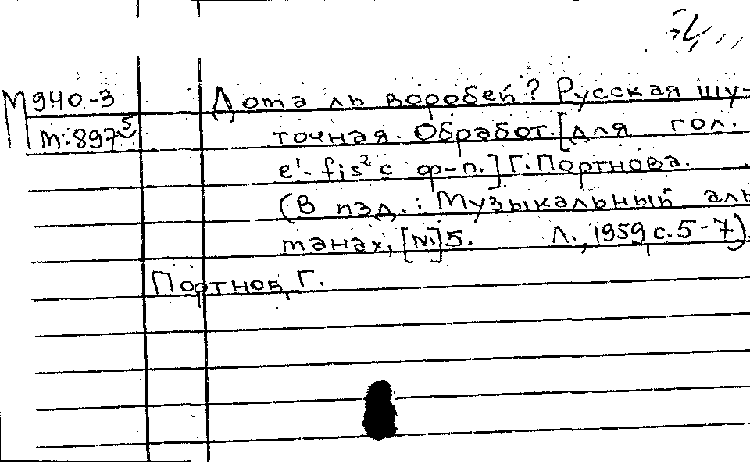 М940-3
m:897⁵
Дома ль воробей? Русская шу-
точная. Обработ. [для гол.
e¹-fis² с ф-п.] Г. Портнова.
(В изд.: Музыкальный аль
манах, [№] 5. Л., 1959, с. 5-7)
Портнов, Г.